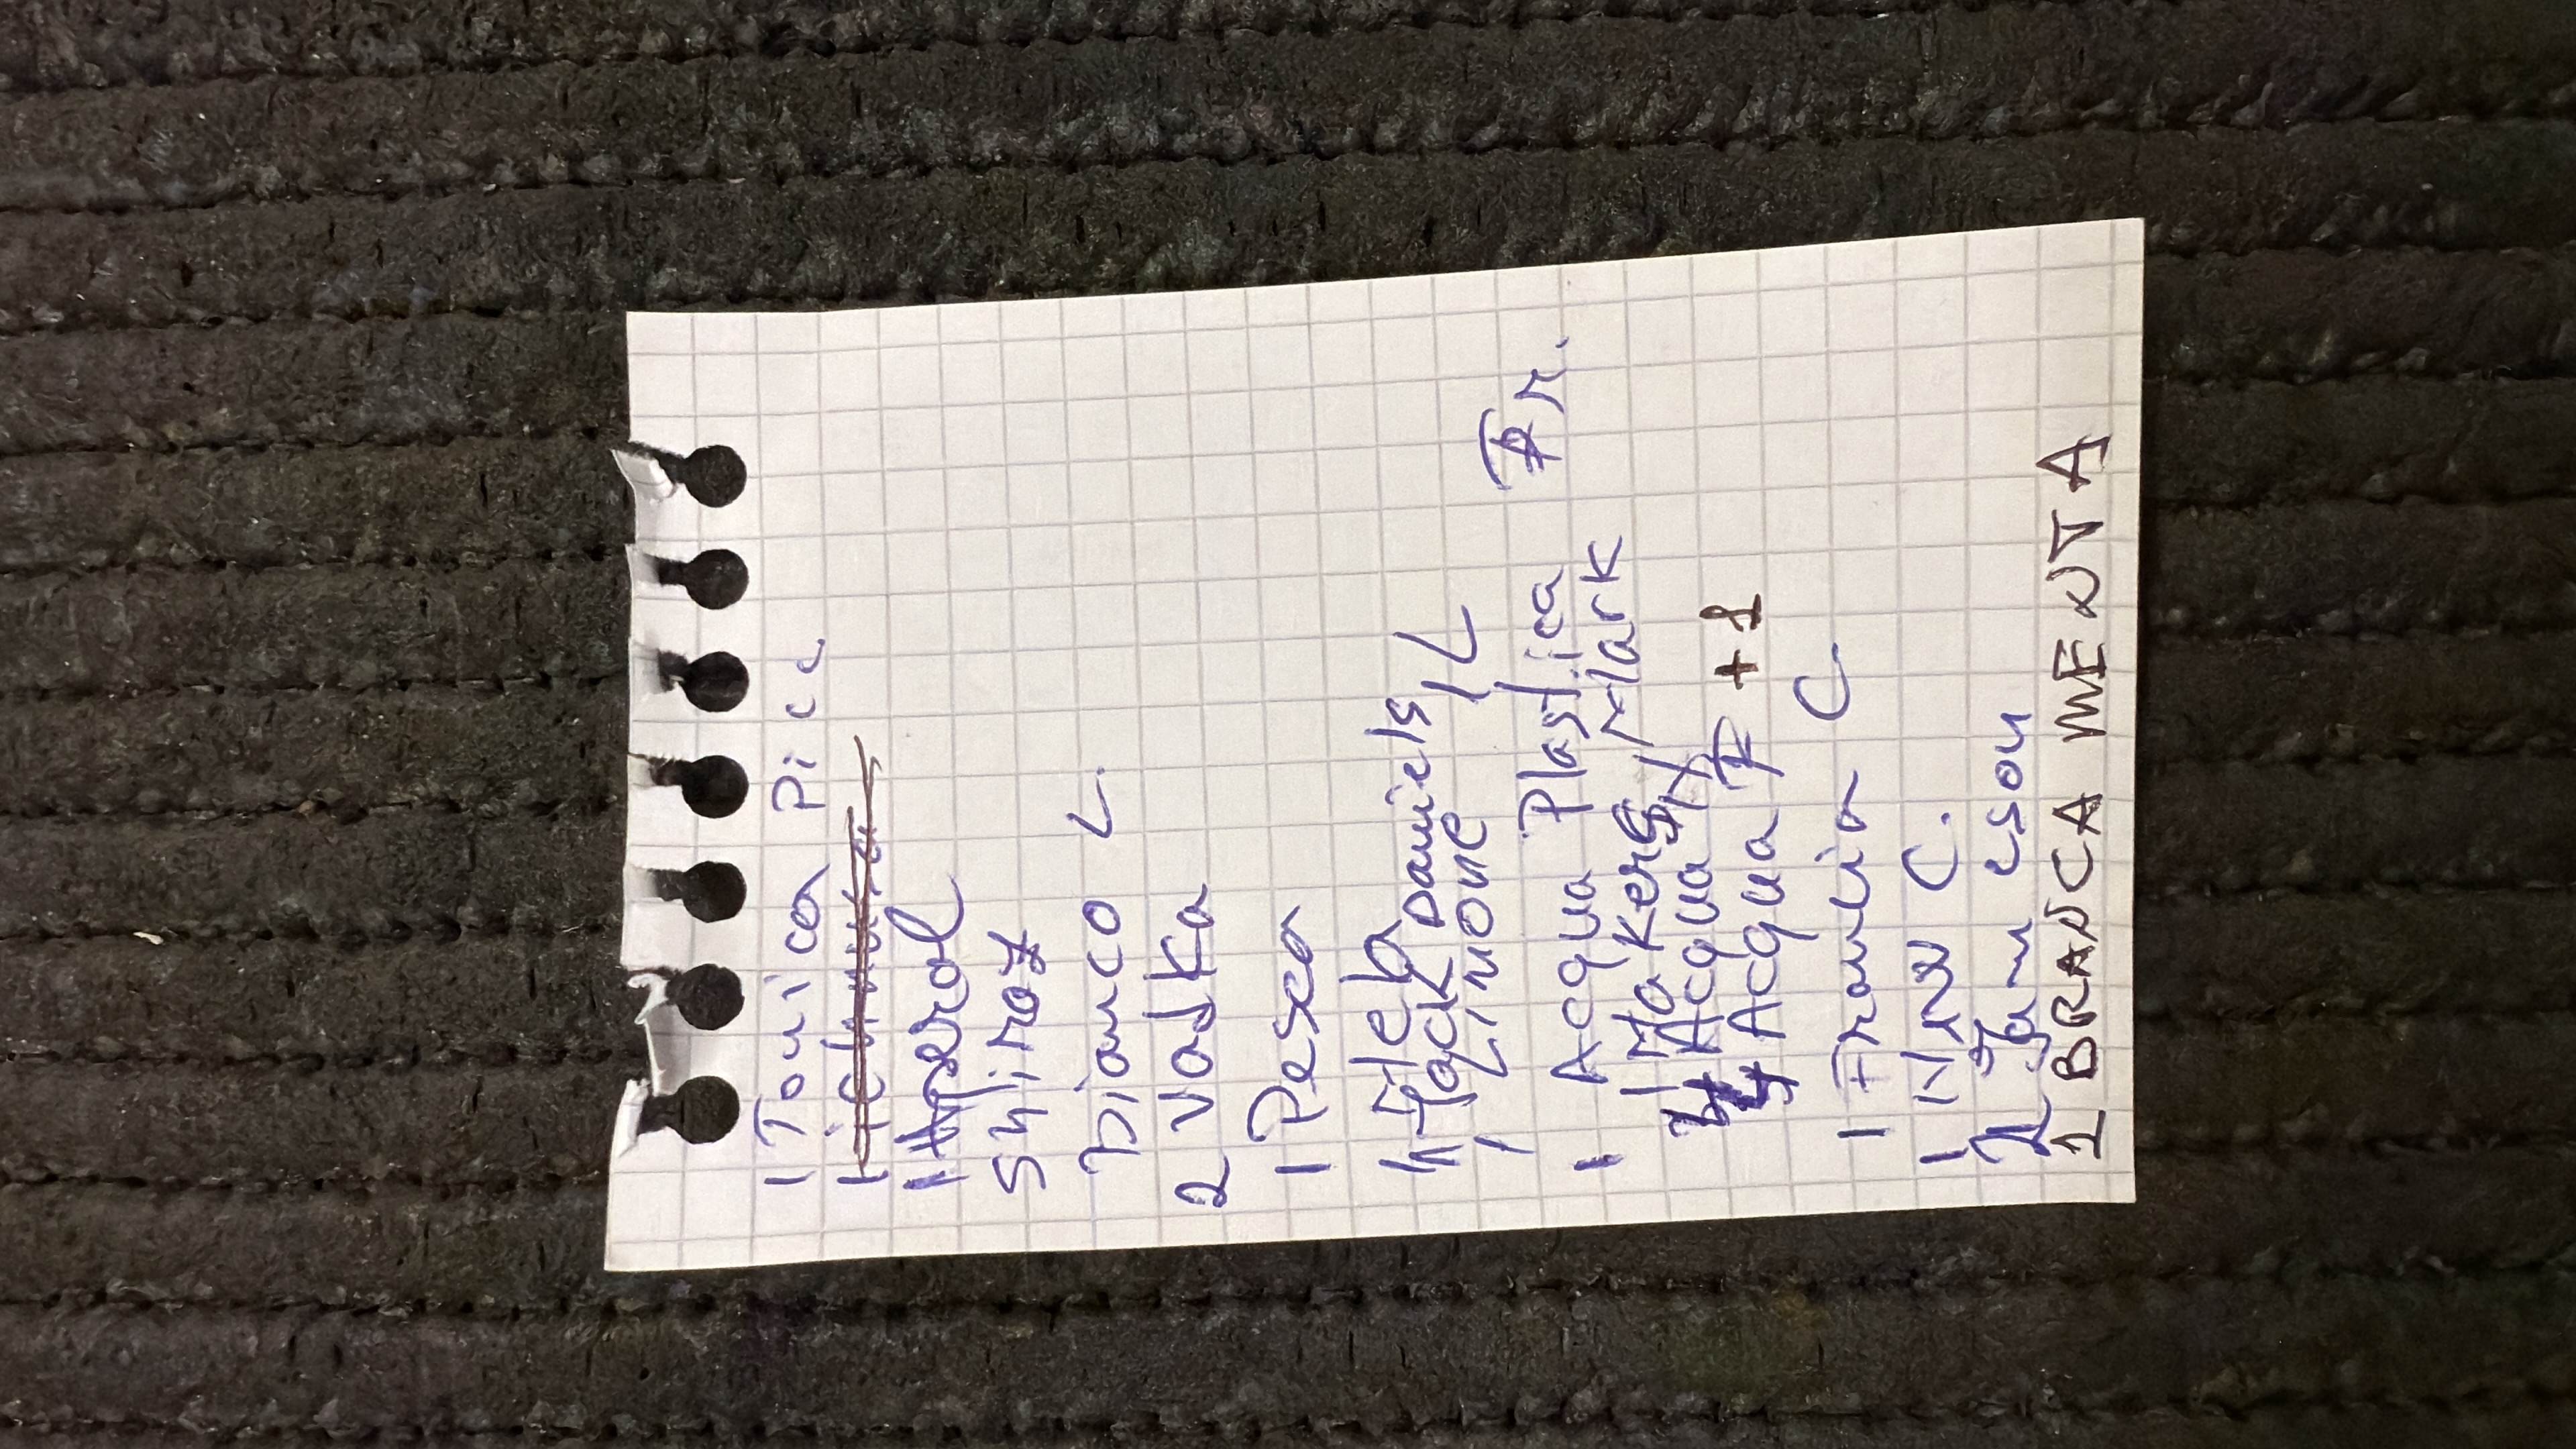 1 Tonica Picc
1 ichnusa
1 Aperol
Shiraz
Bianco L.
2 Vodka
1 Pesca
1 Mela
1 Jack Daniels 1 L
1 Limone
1 Acqua Plastica Fr.
1 Makers Mark
4 Acqua N
Acqua F + 1
1 Francia C.
1 C.
2 Jameson
1 BRANCA MENTA